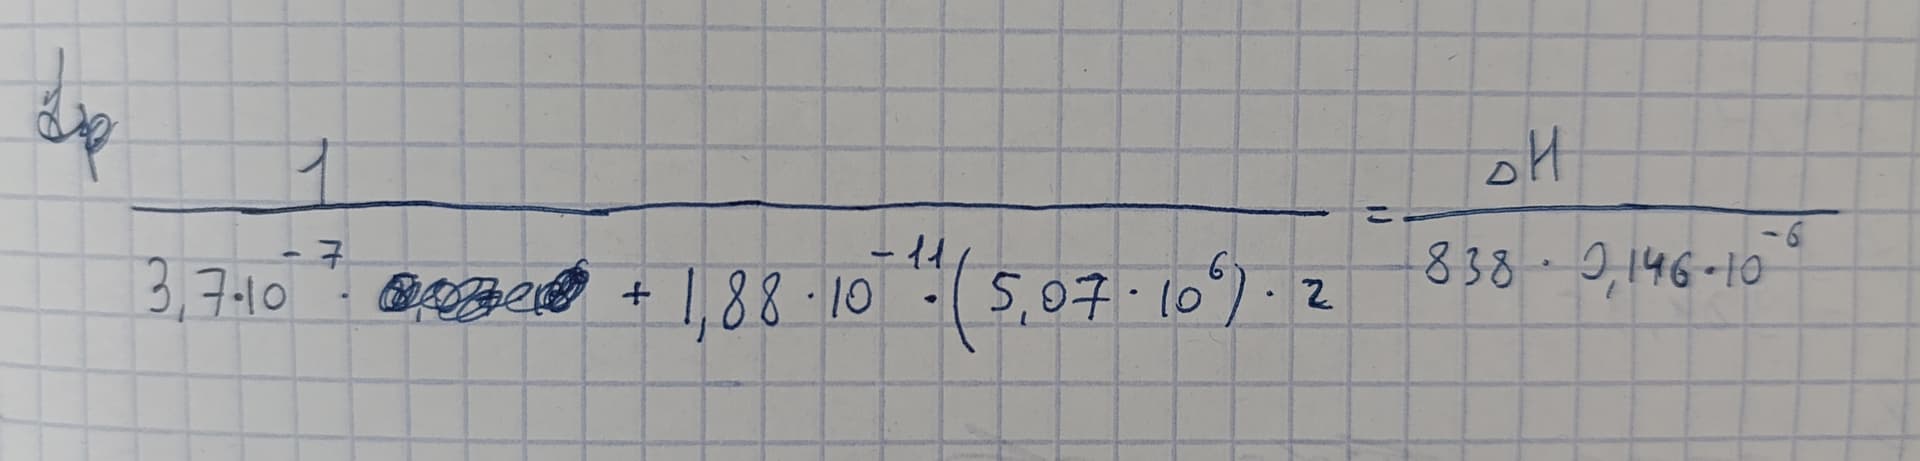 1
3,7·10⁻⁷ · + 1,88 · 10⁻¹¹ · (5,07 · 10⁶) · 2 = ΔH
838 · 0,146 · 10⁻⁶